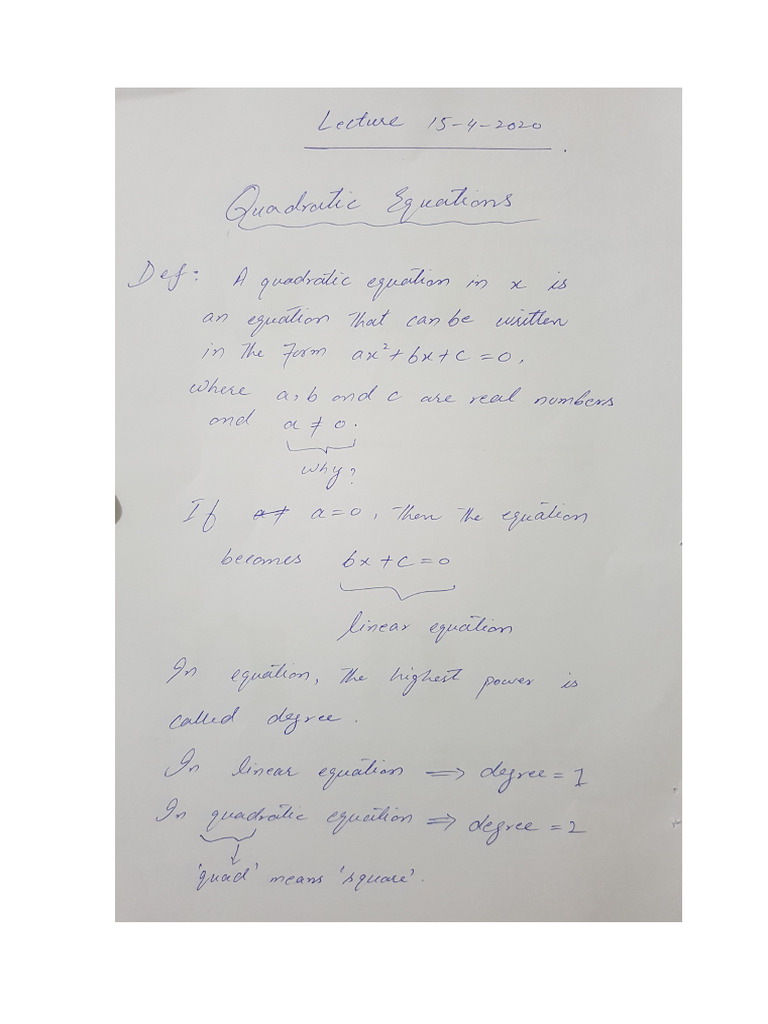 Lecture 15-4-2020
Quadratic Equations
Def: A quadratic equation in x is
an equation that can be written
in the form ax² + bx + c = 0,
where a, b and c are real numbers
and a ≠ 0.
why?
If a ≠ a = 0, then the equation
becomes bx + c = 0
linear equation
In equation, the highest power is
called degree.
In linear equation ⟹ degree = 1
In quadratic equation ⟹ degree = 2
'quad' means 'square'.